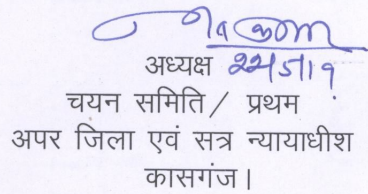 अध्यक्ष 22/5/19
चयन समिति / प्रथम
अपर जिला एवं सत्र न्यायाधीश
कासगंज।